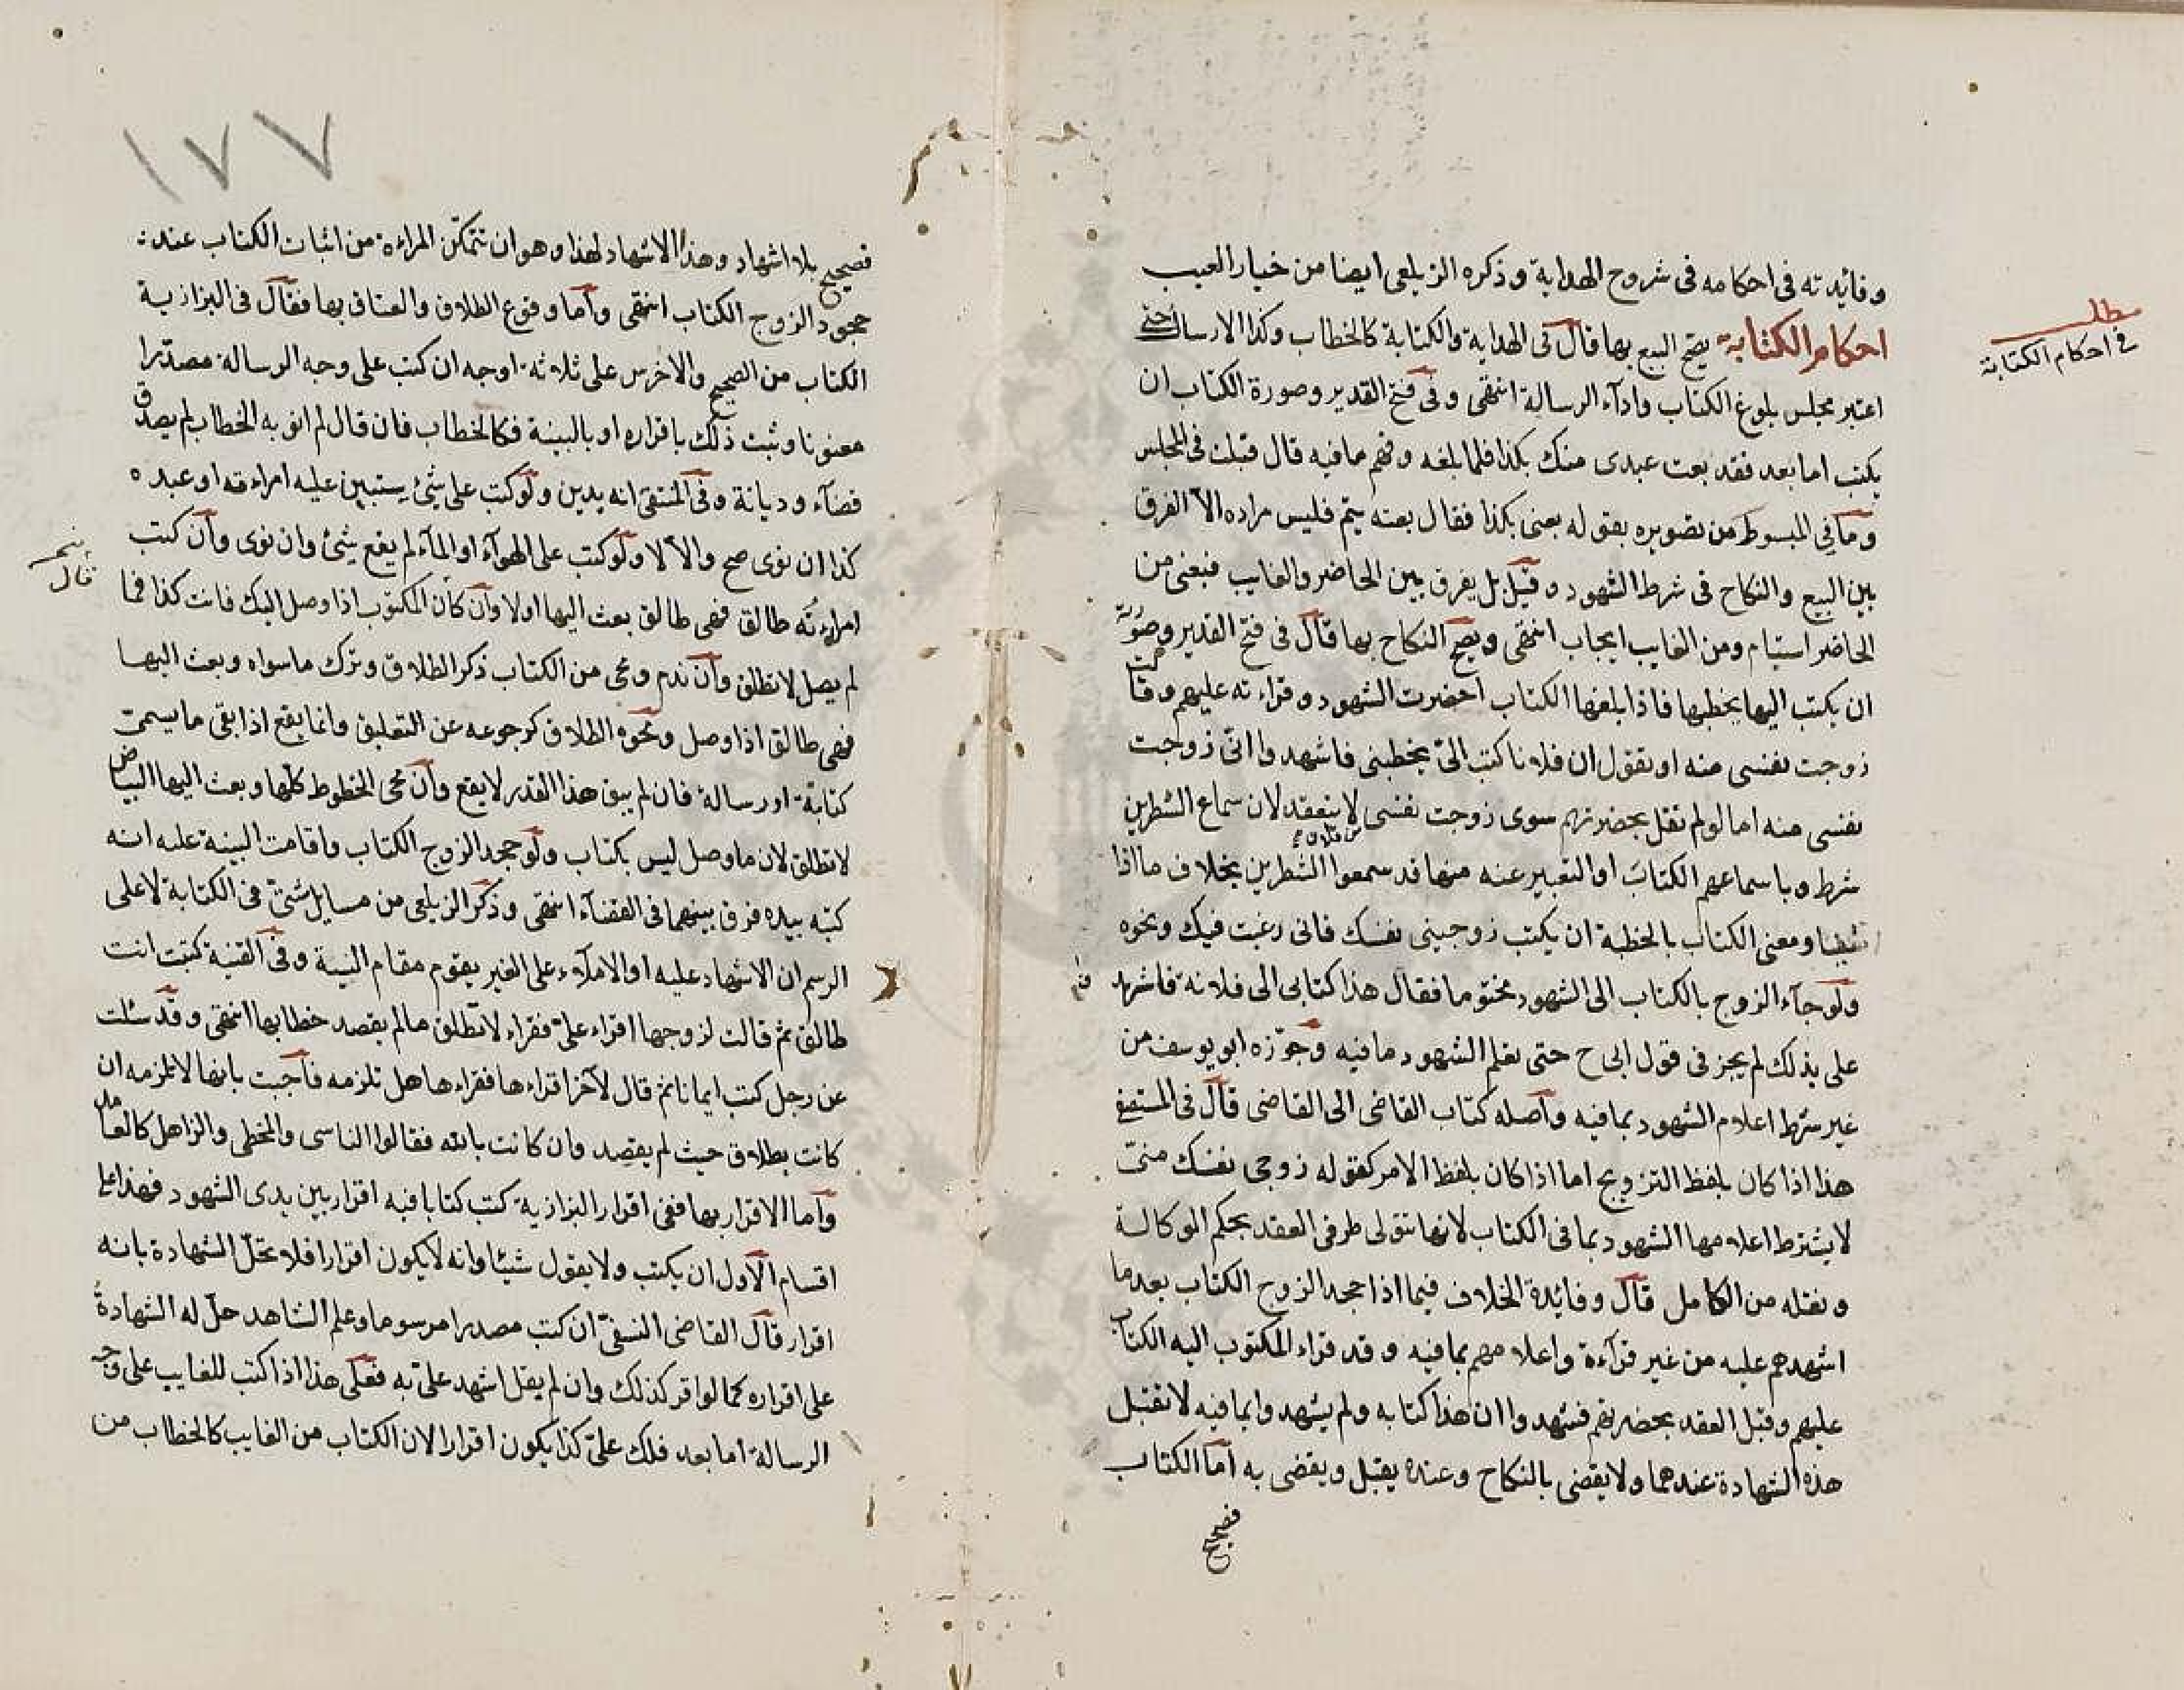 وفائدته فى احكامه فى شروح الهداية وذكره الزيلعى ايضا من خيار العيب
مطلب
فى احكام الكتابة
احكام الكتابة يصح البيع بها قال فى الهداية والكتابة كالخطاب وكذا الارسال حتى
اعتبر مجلس بلوغ الكتاب وادآء الرسالة انتهى وفى فتح القدير وصورة الكتاب ان
يكتب اما بعد فقد بعت عبدى منك بكذا فلما بلغه وفهم مافيه قال قبلت فى المجلس
وما فى المبسوط من تصويره بقوله بعنى بكذا فقال بعته يتم فليس مراده الا الفرق
بين البيع والنكاح فى شرط الشهود وقيل بل يفرق بين الحاضر والغايب فبعنى من
الحاضر استيام ومن الغايب ايجاب انتهى ويصح النكاح بها قال فى فتح القدير وصورته
ان يكتب اليها يخطبها فاذا بلغها الكتاب احضرت الشهود وقراءته عليهم وقالت
زوجت نفسى منه او تقول ان فلانا كتب الىّ يخطبنى فاشهدوا انى زوجت
نفسى منه اما لو لم تقل بحضرتهم سوى زوجت نفسى لا ينعقد لان سماع الشطرين
شرط وباسماعهم الكتاب او التعبير عنه منها قد سمعوا الشطرين بخلاف ما اذا
ومعنى الكتاب بالخطبة ان يكتب زوجينى نفسك فانى رغبت فيك ونحوه
ولو جآء الزوج بالكتاب الى الشهود مختوما فقال هذا كتابى الى فلانة فاشهدوا
على بذلك لم يجز فى قول ابى ح حتى تعلم الشهود مافيه وجوّزه ابو يوسف من
غير شرط اعلام الشهود بما فيه واصله كتاب القاضى الى القاضى قال فى المستصفى
هذا اذا كان بلفظ التزويج اما اذا كان بلفظ الامر كقوله زوجى نفسك منىّ
لا يشترط اعلامها الشهود بما فى الكتاب لانها تتولى طرفى العقد بحكم الوكالة
ونقله من الكامل قال وفائدة الخلاف فيما اذا جحد الزوج الكتاب بعد ما
اشهدهم عليه من غير قرآءة واعلامهم بما فيه وقد قراء المكتوب اليه الكتاب
عليهم وقبل العقد بحضرتهم فشهدوا ان هذا كتابه ولم يشهدوا بما فيه لا تقبل
هذه الشهادة عندهما ولا يقضى بالنكاح وعنده يقبل ويقضى به اما الكتاب
فصحيح
١٧٧
فصحيح بلا اشهاد وهذا الاشهاد لهذا وهو ان تتمكن المراءة من اثبات الكتاب عند
جحود الزوج الكتاب انتهى واما وقوع الطلاق والعتاق بها فقال فى البزازية
الكتاب من الصحيح والاخرس على ثلاثة اوجه ان كتب على وجه الرسالة مصدّرا
معنونا وثبت ذلك باقراره او بالبينة فكالخطاب فان قال لم انو به الخطاب لم يصدق
قضآء وديانة وفى المنتقى انه يدين ولو كتب على شئ يستبين عليه امراءته او عبده
كذا ان نوى صح والا لا ولو كتب على الهوآء او المآء لم يقع شئ وان نوى وان كتب
امراءته طالق فهى طالق بعث اليها اولا وان كان المكتوب اذا وصل اليك فانت كذا فما
لم يصل لا تطلق وان ندم ومحى من الكتاب ذكر الطلاق وترك ماسواه وبعث اليها
فهى طالق اذا وصل ومحوه الطلاق كرجوعه عن التعليق وانما يقع اذا بقى ما يسمى
كتابة او رسالة فان لم يبق هذا القدر لا يقع وان محى الخطوط كلها وبعث اليها البياض
لا تطلق لان ما وصل ليس بكتاب ولو جحد الزوج الكتاب واقامت البينة عليه انه
كتبه بيده فرق بينهما فى القضآء انتهى وذكر الزيلعى من مسايل شتىّ فى الكتابة لا على
الرسم ان الاشهاد عليه او الاملآء على الغير يقوم مقام النية وفى القنية كتبت انت
طالق ثم قالت لزوجها اقراء علىّ فقراء لا تطلق مالم يقصد خطابها انتهى وقد سئلت
عن رجل كتب ايمانا ثم قال لآخر اقراءها فقراءها هل تلزمه فاجبت بانها لا تلزمه ان
كانت بطلاق حيث لم يقصد وان كانت بالله فقالوا الناسى والمخطى والزاهل كالعامد
واما الاقرار بها ففى اقرار البزازية كتب كتابا فيه اقرار بين يدى الشهود فهذا على
اقسام الاول ان يكتب ولا يقول شيئا وانه لا يكون اقرارا فلا تحلّ الشهادة بانه
اقرار قال القاضى النسفىّ ان كتب مصدرا مرسوما وعلم الشاهد حلّ له الشهادة
على اقراره كما لو اقر كذلك وان لم يقل اشهد علىّ به فعلى هذا اذا كتب للغايب على وجه
الرسالة اما بعد فلك علىّ كذا يكون اقرارا لان الكتاب من الغايب كالخطاب من